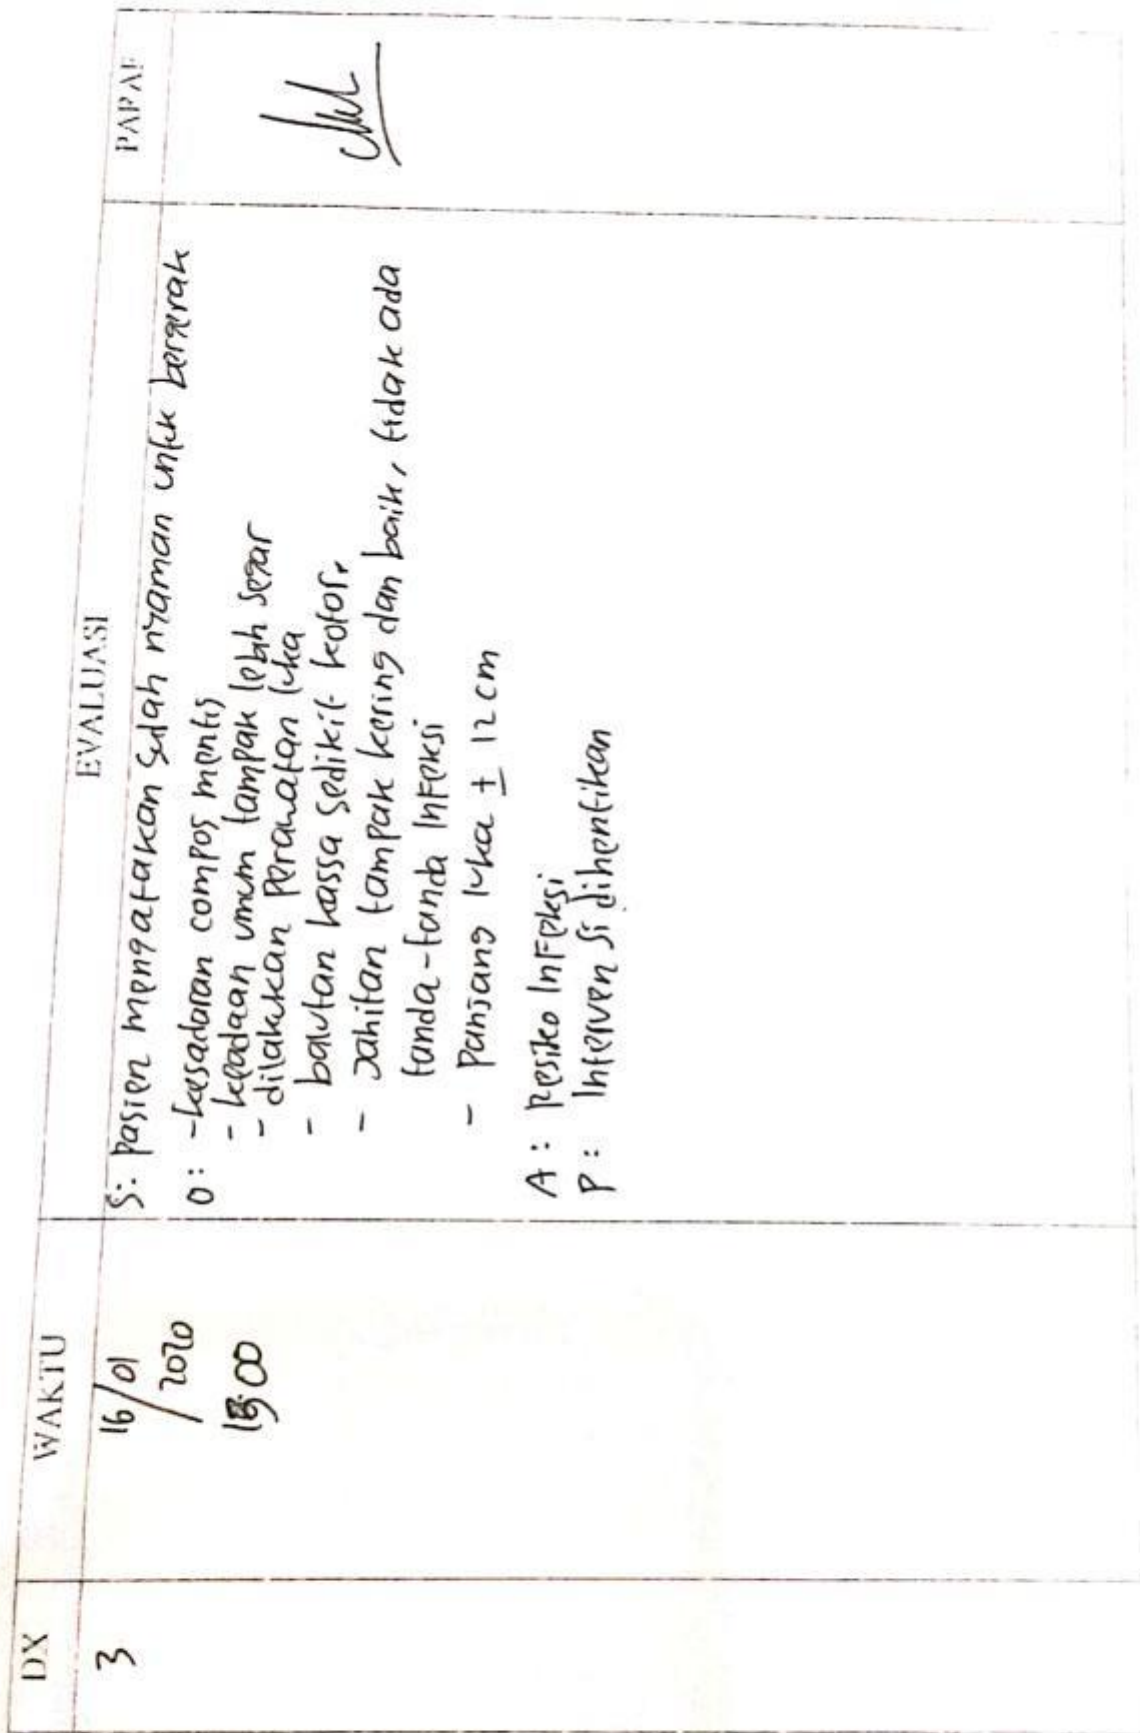 DX WAKTU EVALUASI PARAF
3
16/01
/2020
S: Pasien mengatakan sudah nyaman untuk bergerak
O: - kesadaran compos mentis
- keadaan umum tampak lebih segar
- dilakukan perawatan luka
- balutan kassa sedikit kotor.
- Jahitan tampak kering dan baik, tidak ada
tanda-tanda infeksi
- Panjang luka ± 12 cm
A: Resiko Infeksi
P: Intervensi dihentikan